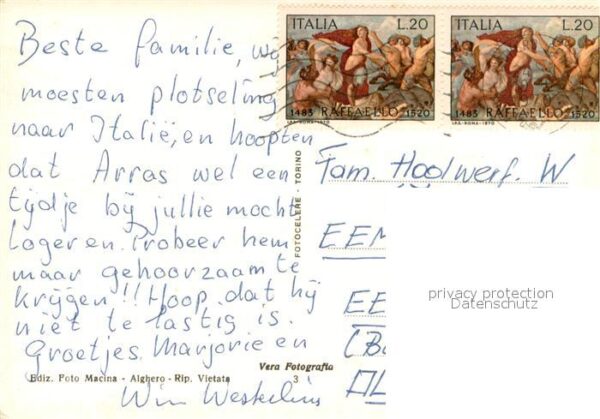 Beste familie, wij
moesten plotseling
naar Italië, en hoopten
dat Arras wel een
tijdje bij jullie mocht
logeren. Probeer hem
maar gehoorzaam te
krijgen!! Hoop dat hij
niet te lastig is.
Groetjes Marjorie en
Wim Westelius
Ediz. Foto Macina - Alghero - Rip. Vietata
Vera Fotografia
3
FOTOCELERE - TORINO
ITALIA L.20
1483 RAFFAELLO 1520
I.P.S.-ROMA-1970
ITALIA L.20
1483 RAFFAELLO 1520
I.P.S.-ROMA-1970
Fam. Hoolwerf. W
EEM
EE
(Ba
privacy protection
Datenschutz